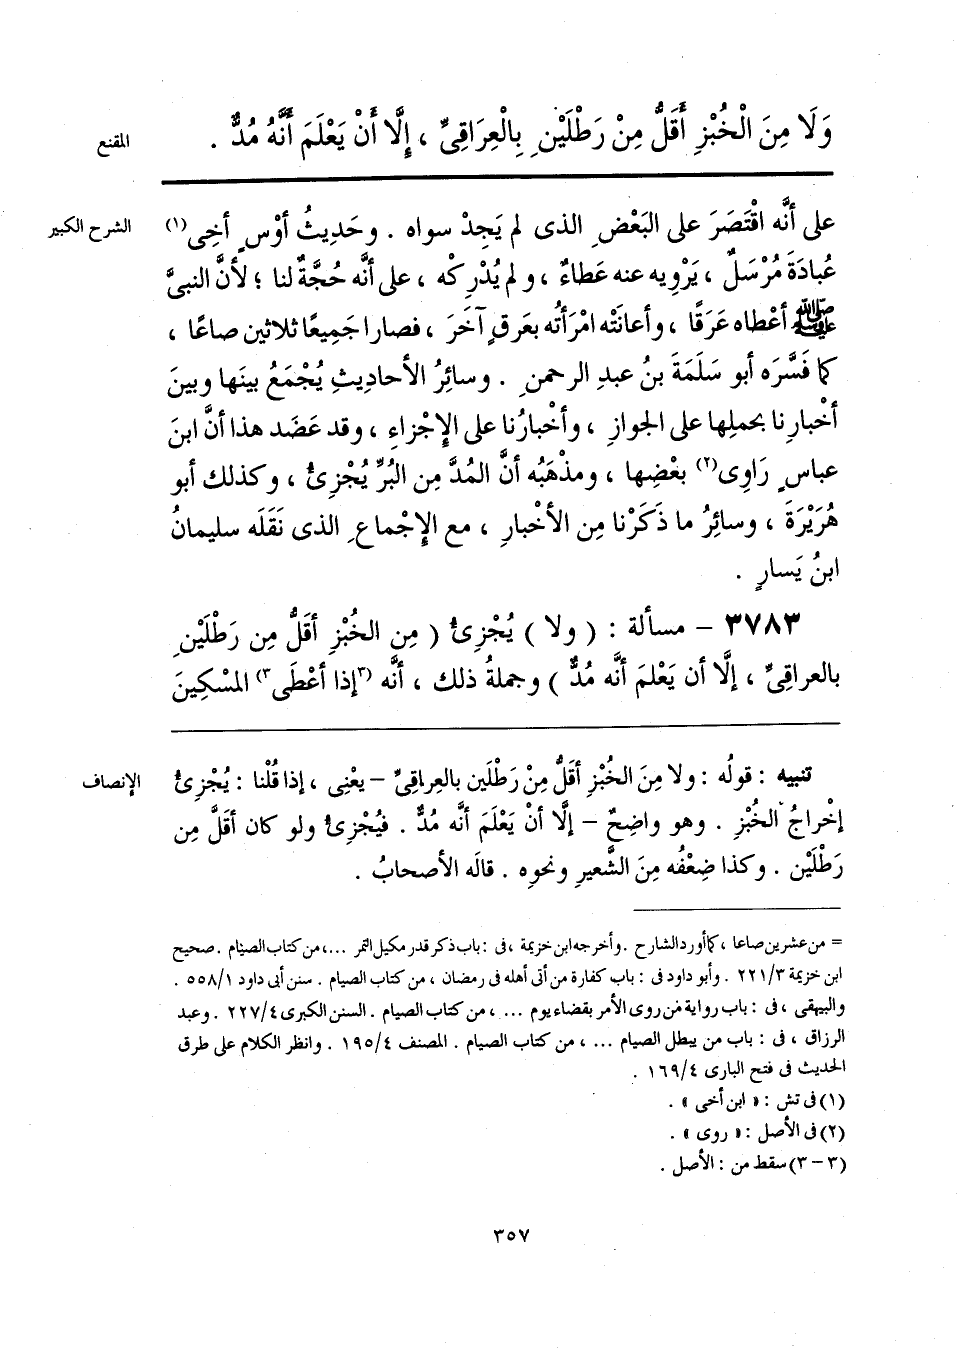 المقنع
وَلَا مِنَ الْخُبْزِ أَقَلُّ مِنْ رَطْلَيْنِ بِالْعِرَاقِىِّ ، إِلَّا أَنْ يَعْلَمَ أَنَّهُ مُدٌّ .
الشرح الكبير
على أنَّه اقْتَصَرَ على البَعْضِ الذى لم يَجِدْ سواه . وحَدِيثُ أوْسٍ أخِى(١)
عُبادَةَ مُرْسَلٌ ، يَرْوِيه عنه عَطاءٌ ، ولم يُدْرِكْه ، على أنَّه حُجَّةٌ لنا ؛ لأنَّ النبىَّ
ﷺ أعْطاه عَرَقًا ، وأعانَتْه امْرَأتُه بعَرَقٍ آخَرَ ، فصارا جَمِيعًا ثلاثين صاعًا ،
كما فَسَّرَه أبو سَلَمَةَ بنُ عبدِ الرحمنِ . وسائِرُ الأحادِيثِ يُجْمَعُ بينَها وبينَ
أخْبارِنا بحملِها على الجوازِ ، وأخْبارُنا على الإِجْزاءِ ، وقد عَضَد هذا أنَّ ابنَ
عباسٍ رَاوِى(٢) بعْضِها ، ومذْهَبُه أنَّ المُدَّ مِن البُرِّ يُجْزِئُ ، وكذلك أبو
هُرَيْرَةَ ، وسائِرُ ما ذَكَرْنا مِن الأخْبارِ ، مع الإِجْماعِ الذى نَقَلَه سليمانُ
ابنُ يَسارٍ .
٣٧٨٣ – مسألة : ( ولا ) يُجْزِئُ ( مِن الخُبْزِ أقَلُّ مِن رَطْلَيْنِ
بالعراقِىِّ ، إلَّا أن يَعْلمَ أنَّه مُدٌّ ) وجملةُ ذلك ، أنَّه (٣إذا أعْطَى٣) المسْكِينَ
الإنصاف
تنبيه : قولُه : ولا مِنَ الخُبْزِ أقَلُّ مِنْ رَطْلَين بالعِراقِىِّ – يعْنِى ، إذا قُلْنا : يُجْزِئُ
إخْراجُ الخُبْزِ . وهو واضِحٌ – إلَّا أنْ يَعْلَمَ أنَّه مُدٌّ . فيُجْزِئُ ولو كان أقَلَّ مِن
رَطْلَيْن . وكذا ضِعْفُه مِنَ الشَّعيرِ ونحوِه . قالَه الأصحابُ .
= من عشرين صاعا ، كما أورد الشارح . وأخرجه ابن خزيمة ، فى : باب ذكر قدر مكيل التمر ... ، من كتاب الصيام . صحيح
ابن خزيمة ٢٢١/٣ . وأبو داود فى : باب كفارة من أتى أهله فى رمضان ، من كتاب الصيام . سنن أبى داود ٥٥٨/١ .
والبيهقى ، فى : باب رواية من روى الأمر بقضاء يوم ... ، من كتاب الصيام . السنن الكبرى ٢٢٧/٤ . وعبد
الرزاق ، فى : باب من يبطل الصيام ... ، من كتاب الصيام . المصنف ١٩٥/٤ . وانظر الكلام على طرق
الحديث فى فتح البارى ١٦٩/٤ .
(١) فى تش : « ابن أخى » .
(٢) فى الأصل : « روى » .
(٣ – ٣) سقط من : الأصل .
٣٥٧